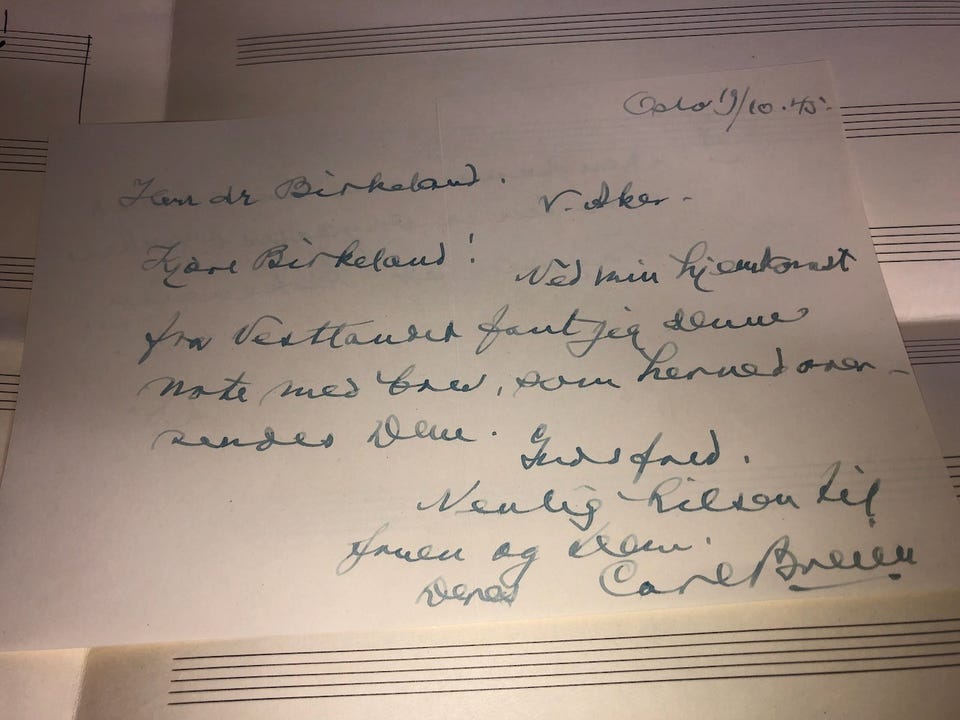 Oslo 19/10.45.
Herr dr Birkeland.
V. Aker.
Kjære Birkeland!
Ved min hjemkomst
fra Vestlandet fant jeg denne
note med brev, som hermed over-
sendes Dem.
Guds fred.
Venlig hilsen til
fruen og Dem.
Deres Carl Breien